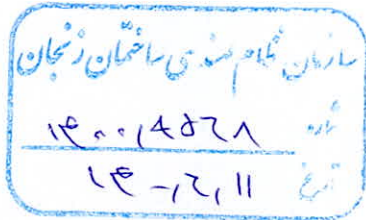 سازمان نظام مهندسی ساختمان زنجان
شماره
تاریخ ۱۴۰۰/۲/۱۱